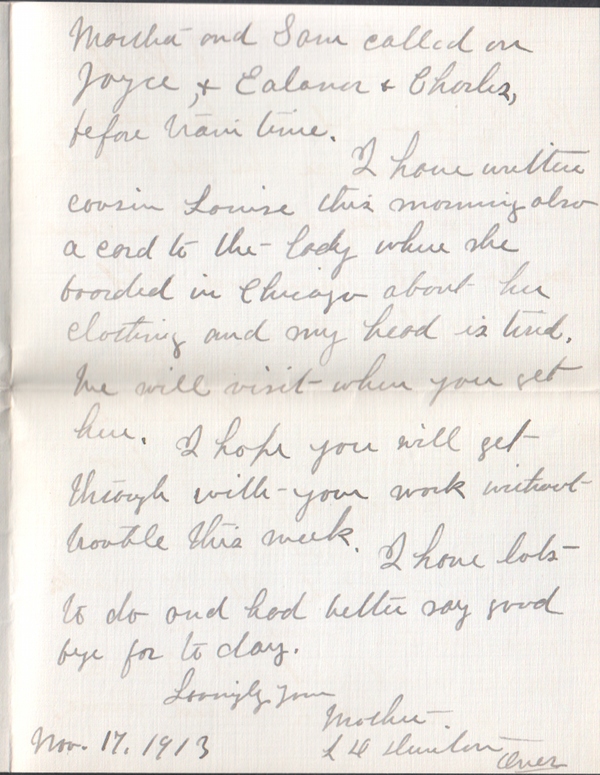 Martha and Sam called on
Joyce, & Ealanor & Charles,
before train time.
I have written
cousin Louise this morning also
a card to the lady where she
boarded in Chicago about her
clothing and my head is tired.
We will visit when you get
here. I hope you will get
through with your work without
trouble this week. I have lots
to do and had better say good
bye for to day.
Lovingly your
Mother.
Nov. 17, 1913
Over